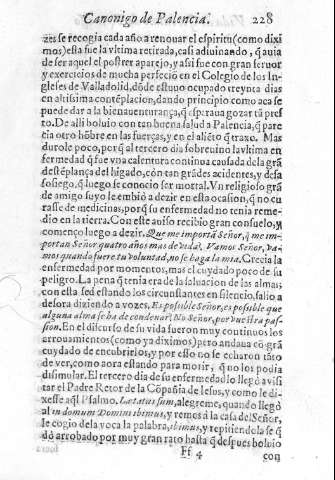 Canonigo de Palencia. 228
zes se recogia cada año a renouar el espiritu (como dixi
mos) esta fue la vltima retirada, casi adiuinando, q̃ auia
de ser aquel el postrer aparejo, y assi fue con gran feruor
y exercicios de mucha perfeciõ en el Colegio de los In-
gleses de Valladolid, dõde estuuo ocupado treynta dias
en altissima contẽplacion, dando principio como aca se
puede dar a la bienauenturança, q̃ esperaua gozar tã pres
to. De alli boluio con tan buena salud a Palencia, q̃ pare
cia otro hõbre en las fuerças, y en el aliẽto q̃ traxo. Mas
durole poco, porq̃ al tercero dia sobreuino la vltima en
fermedad q̃ fue vna calentura continua causada de la grã
destẽplança del higado, cõn tan grãdes accidentes, y desa
sosiego, q̃ luego se conocio ser mortal. Vn religioso grã
de amigo suyo le embiò a dezir en esta ocasion, q̃ no cu
rasse de medicinas, porq̃ su enfermedad no tenia reme-
dio en la tierra. Con este auiso recibio gran consuelo, y
començo luego a dezir. Que me importã Señor, q̃ me im-
portan Señor quatro años mas de vida? Vamos Señor, va-
mos quando fuere tu voluntad, no se haga la mia. Crecia la
enfermedad por momentos, mas el cuydado poco de su
peligro. La pena q̃ tenia era de la saluacion de las almas
con esta sed estando los circunstantes en silencio, salio a
desora diziendo a vozes. Es posible Señor, es posible que
alguna alma se ha de condenar? No Señor, por vuestra pas-
sion. En el discurso de su vida fueron muy continuos los
arrouamientos (como ya diximos) pero andaua cõ grã
cuydado de encubrirlos, y por esso no se echaron tãto
de ver, como aora estando para morir, q̃ no los podia
dissimular. El tercero dia de su enfermedad lo llegò a visi
tar el Padre Retor de la Cõpañia de Iesus, y como le di-
xesse aql̃ Psalmo. Lætatus sum, alegreme, quando llegò
al in domum Domini ibimus, y remos a la casa del Señor,
le cogio de la voca la palabra, ibimus, y repitiendola se q̃
dò arrobado por muy gran rato hasta q̃ despues boluio
Ff 4 con